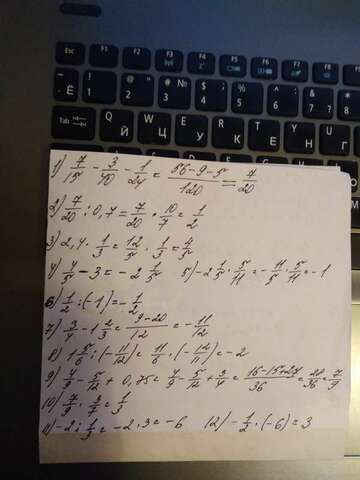 Esc F1 F2 F3 F4 F5 F6 F7 F8
Ё ! 1 @ " 2 # № 3 $ ; 4 % 5 : 6 & 7
Tab Й Ц У К Е Н
1) 7/15 - 3/40 - 1/24 = (56-9-5)/120 = 7/20
2) 7/20 : 0,7 = 7/20 · 10/7 = 1/2
3) 2,4 · 1/3 = 12/5 · 1/3 = 4/5
4) 4/5 - 3 = -2 1/5 5) -2 1/5 · 5/11 = -11/5 · 5/11 = -1
6) 1/2 : (-1) = -1/2
7) 3/4 - 1 2/3 = (9-20)/12 = -11/12
8) 1 5/6 : (-11/12) = 11/6 · (-12/11) = -2
9) 4/9 - 5/12 + 0,75 = 4/9 - 5/12 + 3/4 = (16-15+27)/36 = 28/36 = 7/9
10) 7/9 · 3/7 = 1/3
11) -2 : 1/3 = -2 · 3 = -6 12) -1/2 · (-6) = 3